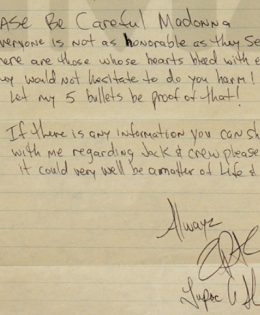 ASE Be Careful Madonna
veryone is not as honorable as they Se
here are those whose hearts bleed with e
ey would not hesitate to do you harm!
Let my 5 bullets be proof of that!
If there is any information you can sh
with me regarding Jack & crew please
it could very well be a matter of Life &
Always